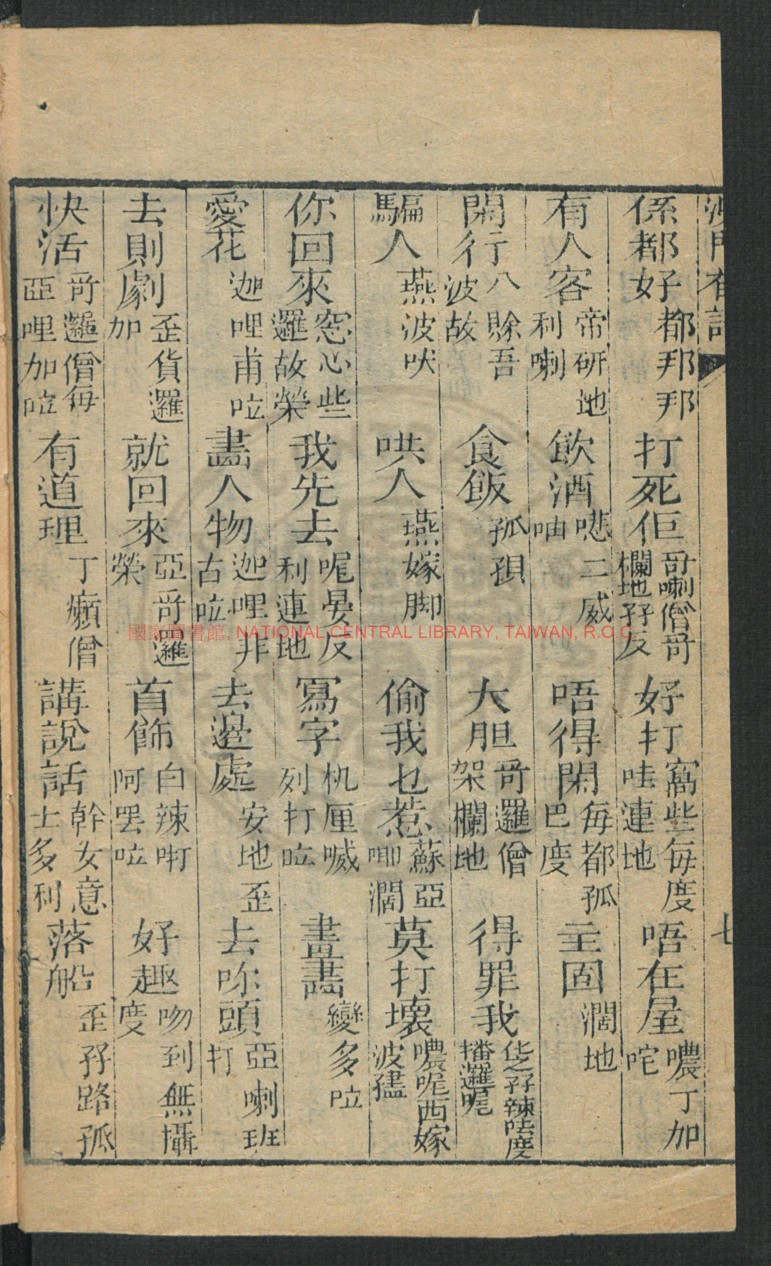 係都好 都耶耶 打死佢 哥喇僧哥欄地孖反 好打 窩些每度哇連地 唔在屋 噥丁加咜
有人客 帝研地利喇 飲酒 嗯二威呻 唔得閑 每都孤巴度 主固 濶地
閑行 八賒吾波故 食飯 孤孭 大胆 哥邏僧架欄地 得罪我 孖辣哇度播邏呢
騙人 燕波吠 哄人 燕嫁脚 偷我乜惹 蘇亞唧濶 莫打壞 噥呢西嫁波孻
你回來 窓心些邏故榮 我先去 呢晏反利連地 寫字 机厘嘁列打㕸 畫畵 變多㕸
愛花 迦哩甫㕸 畵人物 迦哩非古㕸 去邊處 安地歪 去你頭 亞喇班打
去則劇 歪貨邏加 就回來 亞哥邏榮 首飾 白辣咑阿罢㕸 好趣 吻到無攝度
快活 哥邏僧每亞哩加㕸 有道理 丁癩僧 講說話 幹女意士多利 落船 歪孖路孤
七
國家圖書館, NATIONAL CENTRAL LIBRARY, TAIWAN, R.O.C.